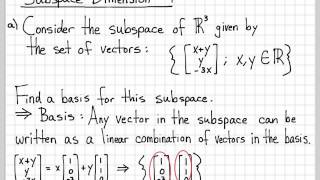 Subspace Dimension
a) Consider the subspace of ℝ³ given by
the set of vectors: { [x+y y -3x] ; x,y ∈ ℝ }
Find a basis for this subspace.
⇒ Basis: Any vector in the subspace can be
written as a linear combination of vectors in the basis.
[x+y y -3x] = x[1 0 -3] + y[1 1 0] ⇒ { [1 0 -3] [1 1 0] }